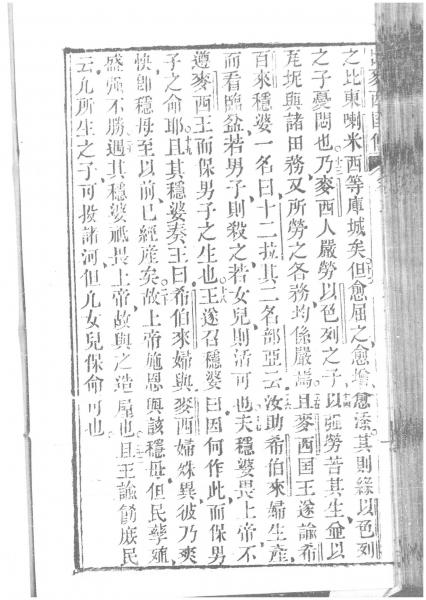 之比東喇米西等庫城矣但愈屈之愈增愈添其則緣以色列
之子憂悶也乃麥西人嚴勞以色列之子以強勞苦其生並以
坭與諸田務又所勞之各務均係嚴焉且麥西国王遂諭希
百來穩婆一名曰十二拉其二名部亞云汝助希伯來婦生產
而看臨盆若男子則殺之若女兒則活可也夫穩婆畏上帝不
遵麥西王而保男子之生也王遂召穩婆曰因何作此而保男
子之命耶且其穩婆奏王曰希伯來婦與麥西婦殊異彼乃爽
快卽穩母至以前已經産矣故上帝施恩與該穩母但民孳
盛強不勝遇其穩婆祇畏上帝故與之造屋也且王諭飭庶民
云凡所生之子可投諸河但凡女兒保命可也